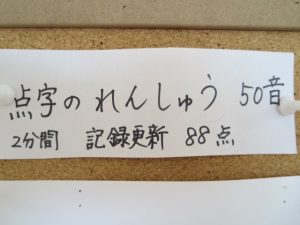 点字の れんしゅう 50音
2分間 記録更新 88点